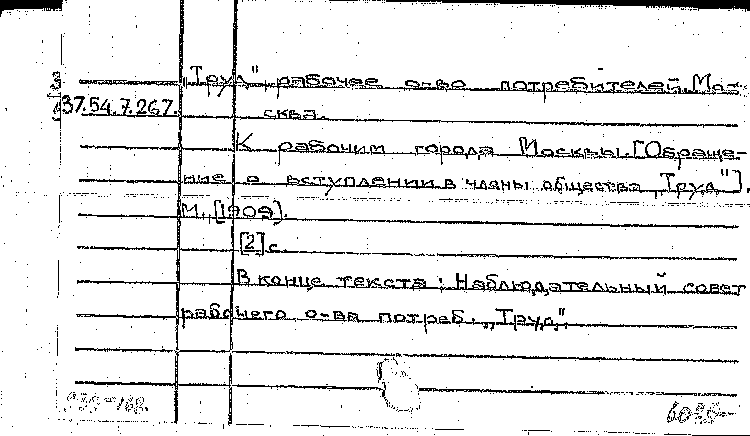 „Труд", рабочее о-во потребителей. Мос-
37.54.7.267.
сква.
К рабочим города Москвы. [Обраще-
ние о вступлении в члены общества „Труд"].
М., [1909].
[2] с.
В конце текста: Наблюдательный совет
рабочего о-ва потреб. „Труд".